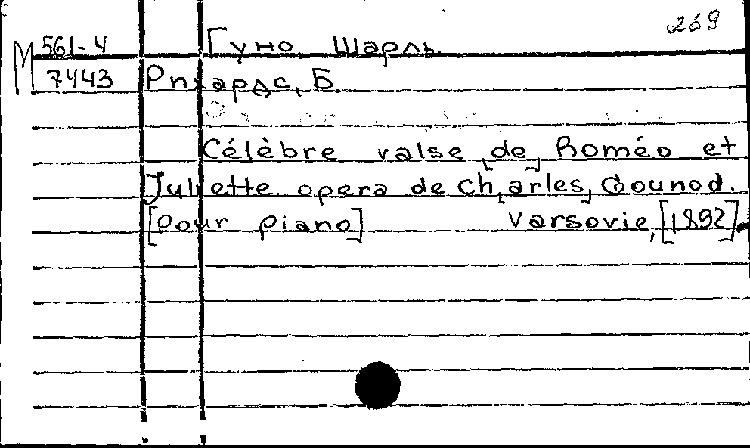 269
М 561-4 Гуно Шарль.
7443 Рихардс, Б.
Célèbre valse [de] Roméo et
Juliette opera de Ch[arles] Gounod.
[pour piano] Varsovie, [1892].